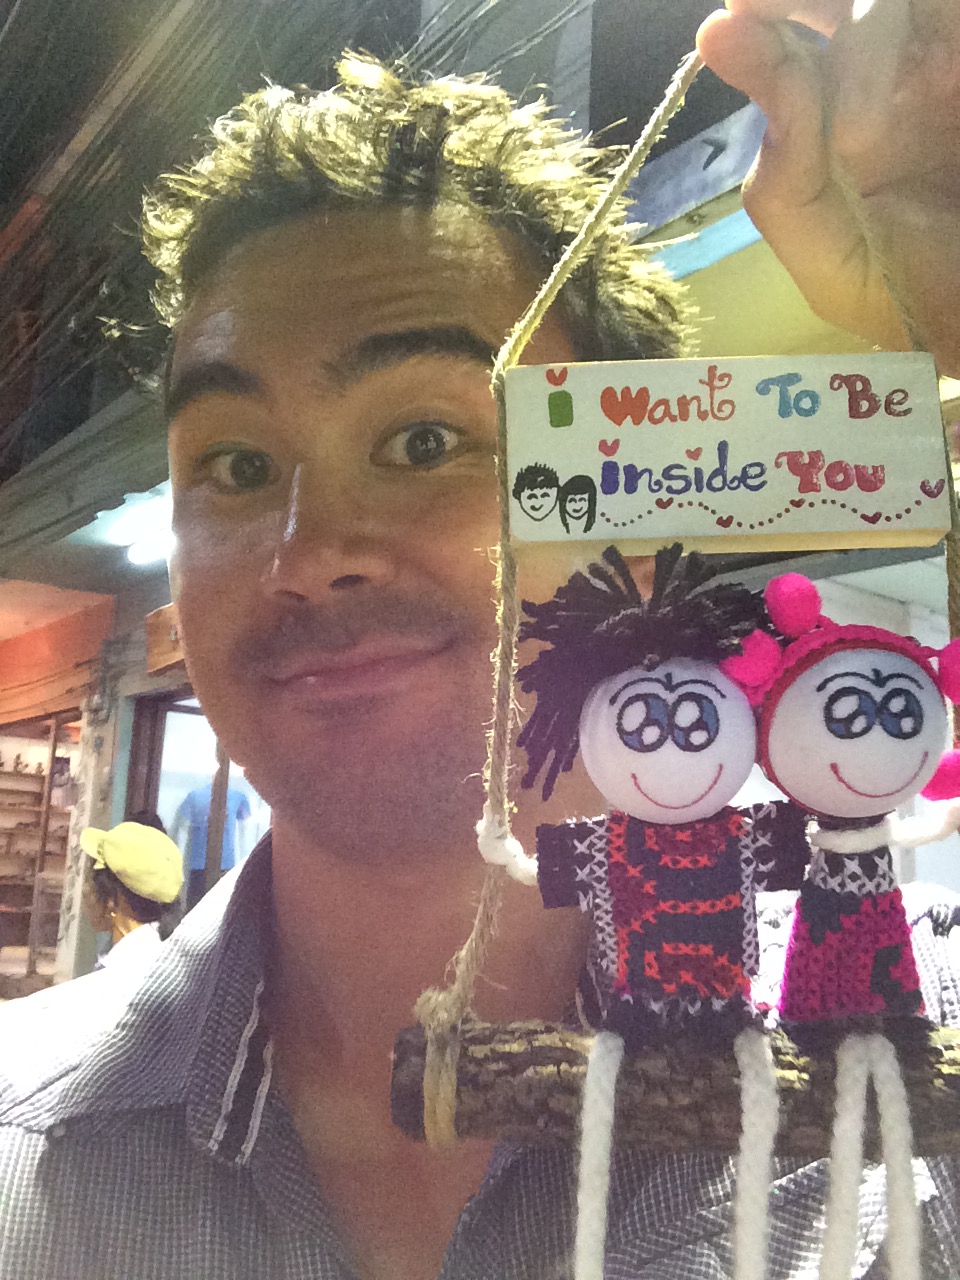 i Want To Be
inside You